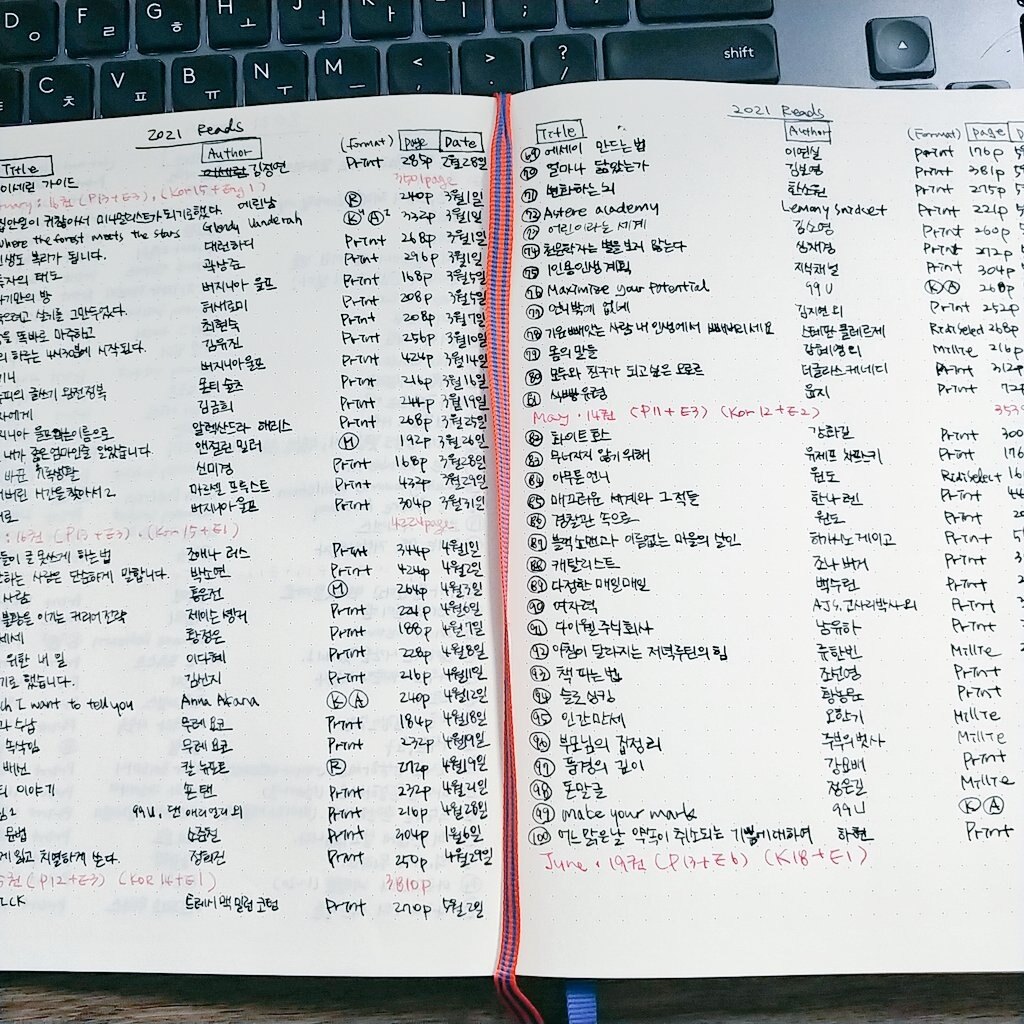 D ㅇ F ㄹ G ㅎ H J K
C ㅊ V ㅍ B ㅠ N ㅜ M ㅡ < , > . ? / shift
2021 Reads
Title Author (Format) page Date
이세린 가이드 김정연 Print 285p 2월28일
3501page
16권 (P13+E3), (Kor15+Eng1)
미니멀리스트가 되기로했다. 에린남 R 240p 3월1일
Where the forest meets the stars Glendy Vanderah K A 332p 3월1일
인생도 복리가 됩니다. 대런하디 Print 268p 3월1일
의 태도 곽남준 Print 296p 3월1일
자기만의 방 버지니아 울프 Print 168p 3월5일
살기를 그만두었다. 허새로미 Print 208p 3월5일
똑바로 마주하고 최현숙 Print 208p 3월7일
의 하루는 4시30분에 시작된다. 김유진 Print 256p 3월10일
버지니아울프 Print 424p 3월14일
의 글쓰기 완전정복 몬티 슐츠 Print 216p 3월16일
에게 김금희 Print 244p 3월19일
버지니아 울프라는이름으로 알렉산드라 해리스 Print 268p 3월25일
내가 젊은엄마인줄 알았습니다. 앤절린 밀러 M 192p 3월26일
바꾼 신미경 Print 168p 3월28일
잃어버린 시간을찾아서2 마르셀 프루스트 Print 432p 3월29일
버지니아울프 Print 304p 3월31일
4224page
: 16권 (P13+E3), (Kor15+E1)
들이 글 못쓰게 하는법 조애나 러스 Print 344p 4월1일
하는 사람은 단순하게 말합니다. 박소연 Print 424p 4월2일
사람 홍은전 M 264p 4월3일
불황을 이기는 커리어전략 제이슨 솅커 Print 4월6일
황정은 Print 188p 4월7일
위한 내 일 이다혜 Print 228p 4월8일
기로 했습니다. 김신지 Print 216p 4월11일
I want to tell you Anna Akana K A 240p 4월12일
수납 무레 요코 Print 184p 4월18일
속삭임 무레 요코 Print 232p 4월19일
칼 뉴포트 R 272p 4월19일
이야기 숀 탠 Print 232p 4월21일
2 99U, 댄 애리얼리 외 Print 216p 4월28일
문법 소준철 Print 304p 1월6일
잃고 치열하게 쓴다. 정희진 Print 250p 4월29일
(P12+E3) (KOR 14+E1) 3810p
트레시 맥밀런 코텀 Print 270p 5월2일
2021 Reads
Title Author (Format) page
69 에세이 만드는 법 이연실 Print 176p
70 얼마나 닮았는가 김보영 Print 381p
71 변화하는 뇌 한소원 Print 275p
72 Astere academy Lemony Snicket Print 221p
73 어린이라는 세계 김소영 Print 260p
74 천문학자는 별을 보지 않는다 심채경 Print 272p
75 1인용인생계획 지식채널 Print 304p
76 Maximize your potential 99U K A 268p
77 언니밖에 없네 김지연 외 Print 252p
78 기운빼앗는 사람, 내 인생에서 빼버리세요 스테판 클레르제 RidiSelect 268p
79 몸의 말들 강혜영 외 Millie 216p
80 모두와 친구가 되고싶은 오로르 더글라스 케네디 Print 312p
81 식빵유령 윤지 Print
May. 14권 (P11+E3) (Kor12+E2)
82 화이트호스 강화길 Print 300
83 무너지지 않기 위해 유제프 차프스키 Print 176
84 아무튼 언니 원도 RidiSelect
85 매끄러운 세계와 그 적들 한나 렌 Print
86 경찰관 속으로 원도 Print
87 블랙쇼맨과 이름없는 마을의 살인 히가시노게이고 Print
88 캐탈리스트 조나 버거 Print
89 다정한 매일매일 백수린 Print
90 여자력 AJS. 고사리박사외 Print
91 다이웰주식회사 남유하 Print
92 아침이 달라지는 저녁루틴의 힘 류한빈 Millie
93 책 파는 법 조선영 Print
94 슬로싱킹 황농문 Print
95 인간만세 오한기 Millie
96 부모님의 집정리 주부의벗사 Millie
97 풍경의 깊이 강요배 Print
98 돈말글 정은길 Millie
99 make your mark 99U K A
100 어느 맑은날 약속이 취소되는 기쁨에대하여 하현 Print
June. 19권 (P13+E6) (K18+E1)